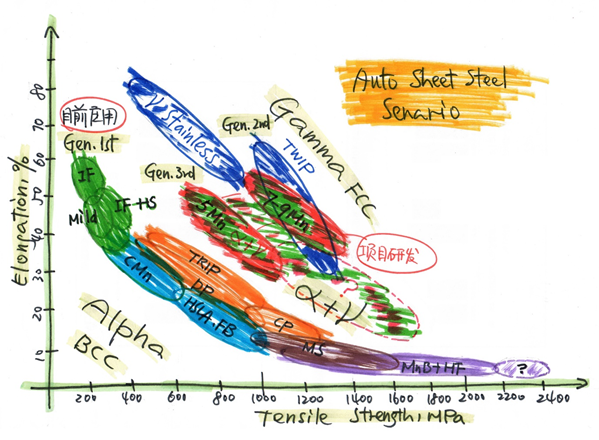 Auto Sheet Steel
Senario
目前应用
Gen. 1st
Gen. 2nd
Gen. 3rd
γ-Stainless
TWIP
Gamma FCC
IF
Mild
IF-HS
5Mn
7-9Mn
α+γ
项目研发
?
α+γ
CMn
TRIP
DP
HSLA.FB
CP
MS
MnB+HF
?
Alpha
BCC
Elongation, %
80
70
60
50
40
30
20
10
200 400 600 800 1000 1200 1400 1600 1800 2000 2200 2400
Tensile Strength, MPa